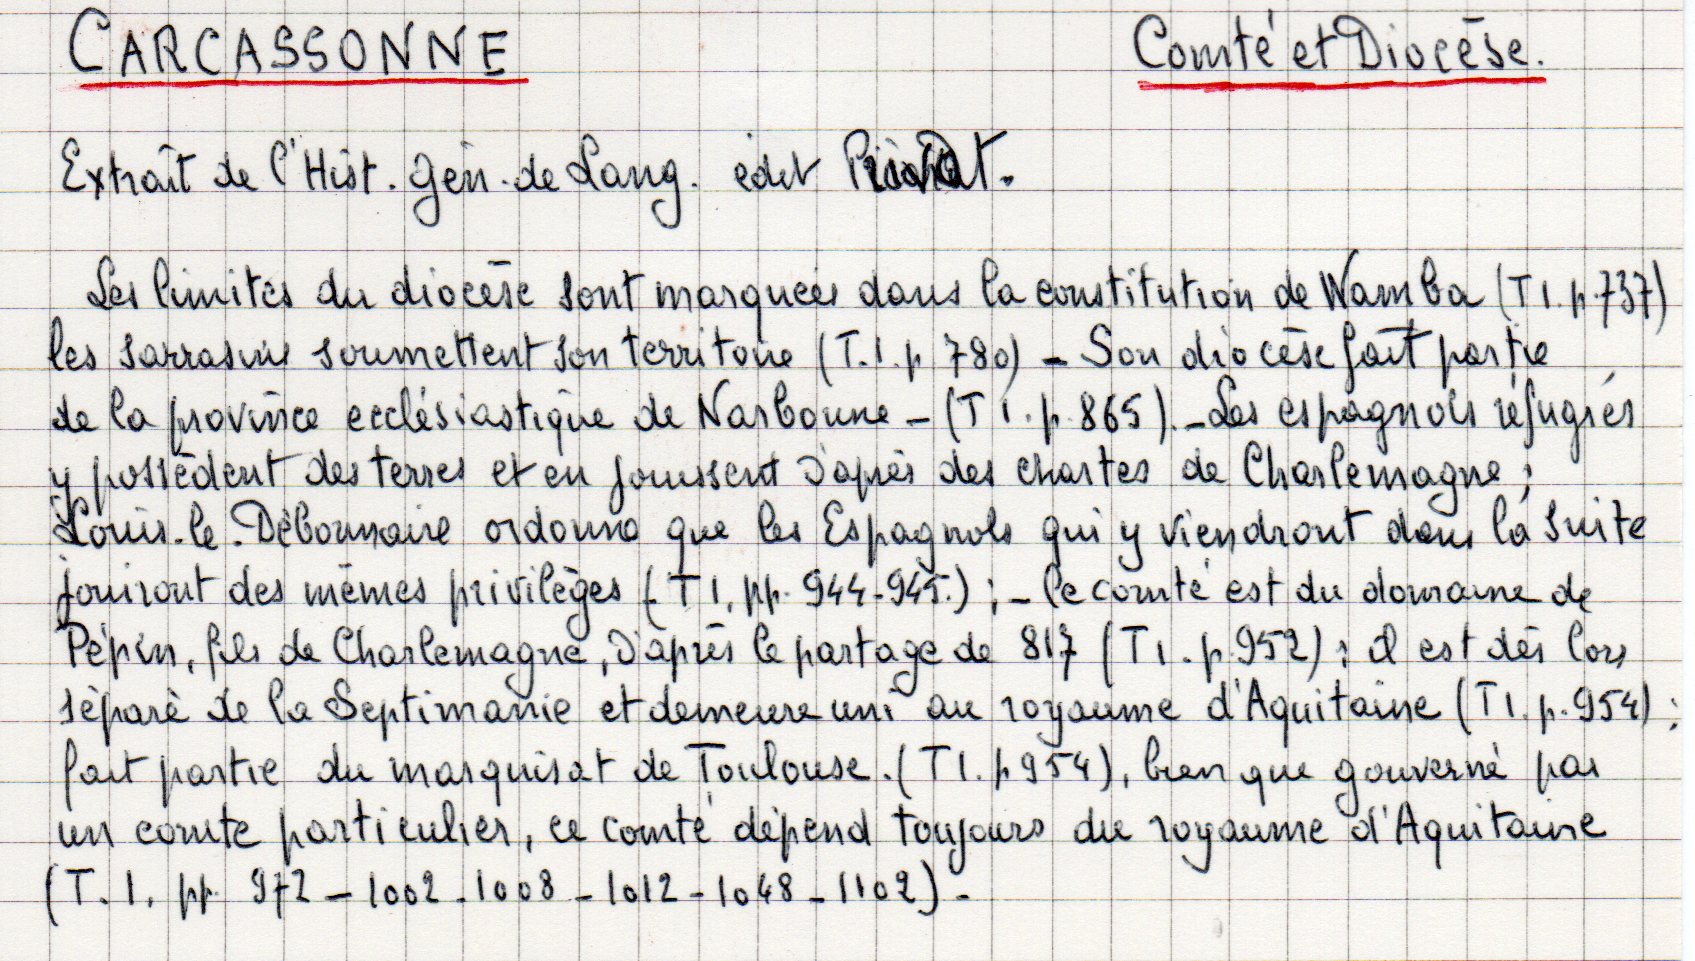 CARCASSONNE Comté et Diocèse.
Extrait de l'Hist. Gén. de Lang. édit Privat.
Les limites du diocèse sont marquées dans la constitution de Wamba (T 1. p. 737)
les sarrasins soumettent son territoire (T. 1. p 780) - Son diocèse fait partie
de la province ecclésiastique de Narbonne - (T 1. p. 865). - Les espagnols réfugiés
y possèdent des terres et en jouissent d'après des chartes de Charlemagne ;
Louis-le-Débonnaire ordonna que les Espagnols qui y viendront dans la suite
jouiront des mêmes privilèges (T 1, pp. 944-945.) ; - le comté est du domaine de
Pépin, fils de Charlemagne, d'après le partage de 817 (T 1. p. 952) ; il est dès lors
séparé de la Septimanie et demeure uni au royaume d'Aquitaine (T 1. p. 954) ;
fait partie du marquisat de Toulouse. (T 1. p 954), bien que gouverné par
un comte particulier, ce comté dépend toujours du royaume d'Aquitaine
(T. 1, pp. 972 - 1002 - 1008 - 1012 - 1048 - 1102) -